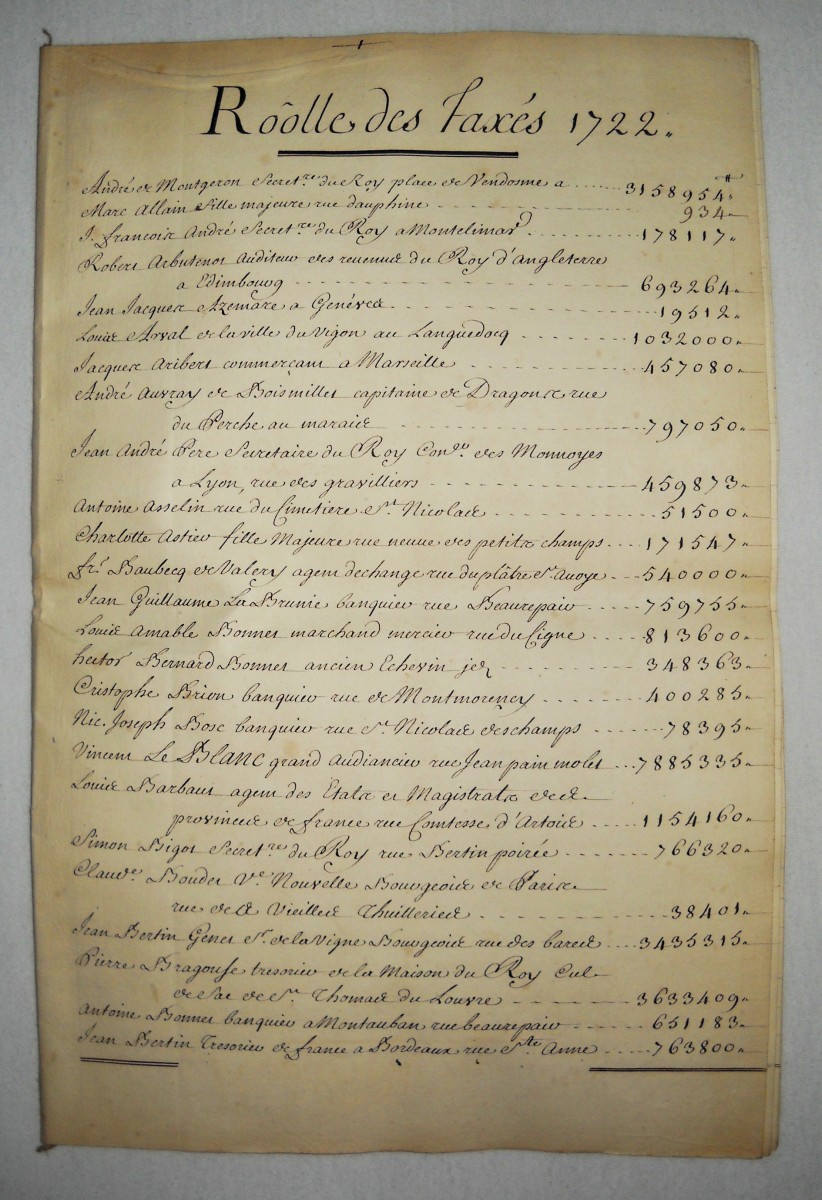 Rôolle des Taxés 1722.
André de Montgeron Secret.re du Roy place de Vendosme a ...... 3158954
Marc Allain fille majeure rue dauphine - - - - 934
J. francois André Secret.re du Roy a Montelimard - - - 178117
Robert Arbutenot Auditeur des revenus du Roy d'Angleterre
a Edimbourg - - - - 693264
Jean Jacques Azemare a Genéve - - - - 19512
Louis Arval de la ville du Vigon au Languedocq - - - - 1032000
Jacques Aribert commerçant a Marseille - - - - 457080
André Auvray de Boismillet capitaine de Dragons rue
du Perche au marais - - - - 797050
Jean André Pere Secretaire du Roy des Monnoyes
a Lyon, rue des gravilliers - - - - 459873
Antoine Asselin rue du Cimetiere St. Nicolas - - - - 51500
Charlotte Astier fille Majeure rue neuve des petits champs ... 171547
fr. Baubecq de Valery agent dechange rue du plâtre St. Avoye ... 540000
Jean Guillaume La Brunie banquier rue Beaurepair ..... 759755
Louis Amable Bonnet marchand mercier rue du Cigne ..... 813600
hector Bernard Bonnet ancien Echevin - - - - 348363
Cristophe Brion banquier rue de Montmorency - - - - 400285
Nic. Joseph Bosc banquier rue St. Nicolas deschamps ..... 78395
Vincent Le BLANC grand Audiancier rue Jean pain molet ... 7885335
Louis Barbaut agent des Etats et Magistrats des
provinces de france rue Comtesse d'Artois ..... 1154160
Simon Bigot Secret.re du Roy rue Bertin poirée - - - - 766320
Claude Boudet Ve. Nouvelle Bourgeois de Paris
rue des Vieilles Thuilleries - - - - 38401
Jean Bertin Genet Sr. de la Vigne Bourgeois rue des bares .... 3435315
Pierre Bragouse tresorier de la Maison du Roy Cul
de Sac de St. Thomas du Louvre - - - - 3633409
Antoine Bonnet banquier a Montauban rue beaurepair - - - - 651183
Jean Bertin Tresorier de france a Bordeaux rue Ste. Anne ..... 763800